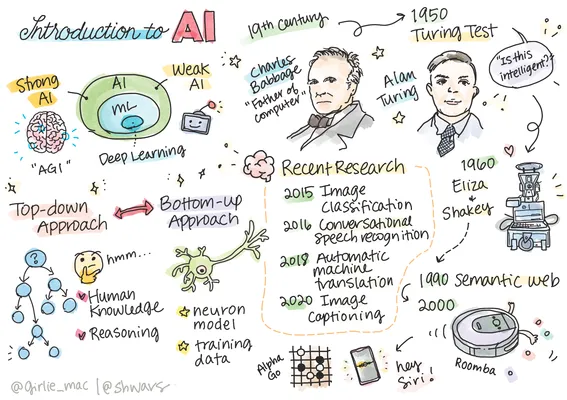 Introduction to AI
Strong
AI
Weak
AI
AI
ML
Deep Learning
"AGI"
19th century
Charles
Babbage
"Father of
computer"
1950
Turing Test
Alan
Turing
"Is this
intelligent?"
1960
Eliza
&
Shakey
Top-down
Approach
Bottom-up
Approach
?
hmm...
Human
Knowledge
Reasoning
neuron
model
training
data
Recent Research
2015 Image
Classification
2016 Conversational
speech recognition
2018 Automatic
machine
translation
2020 Image
captioning
1990 Semantic web
2000
Roomba
Alpha
Go
hey
Siri!
@girlie_mac | @shwars